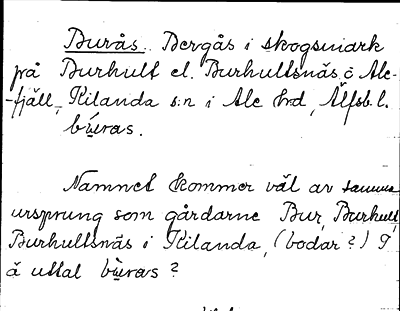 Burås. Bergås i skogsmark
på Burhult el. Burhultsnäs å Ale-
-fjäll, Kilanda s:n i Ale hd, Älfsb. l.
bùras.
Namnet kommer väl av samma
ursprung som gårdarne Bur, Burhult,
Burhultsnäs i Kilanda, (bodar?)
å uttal bùras?